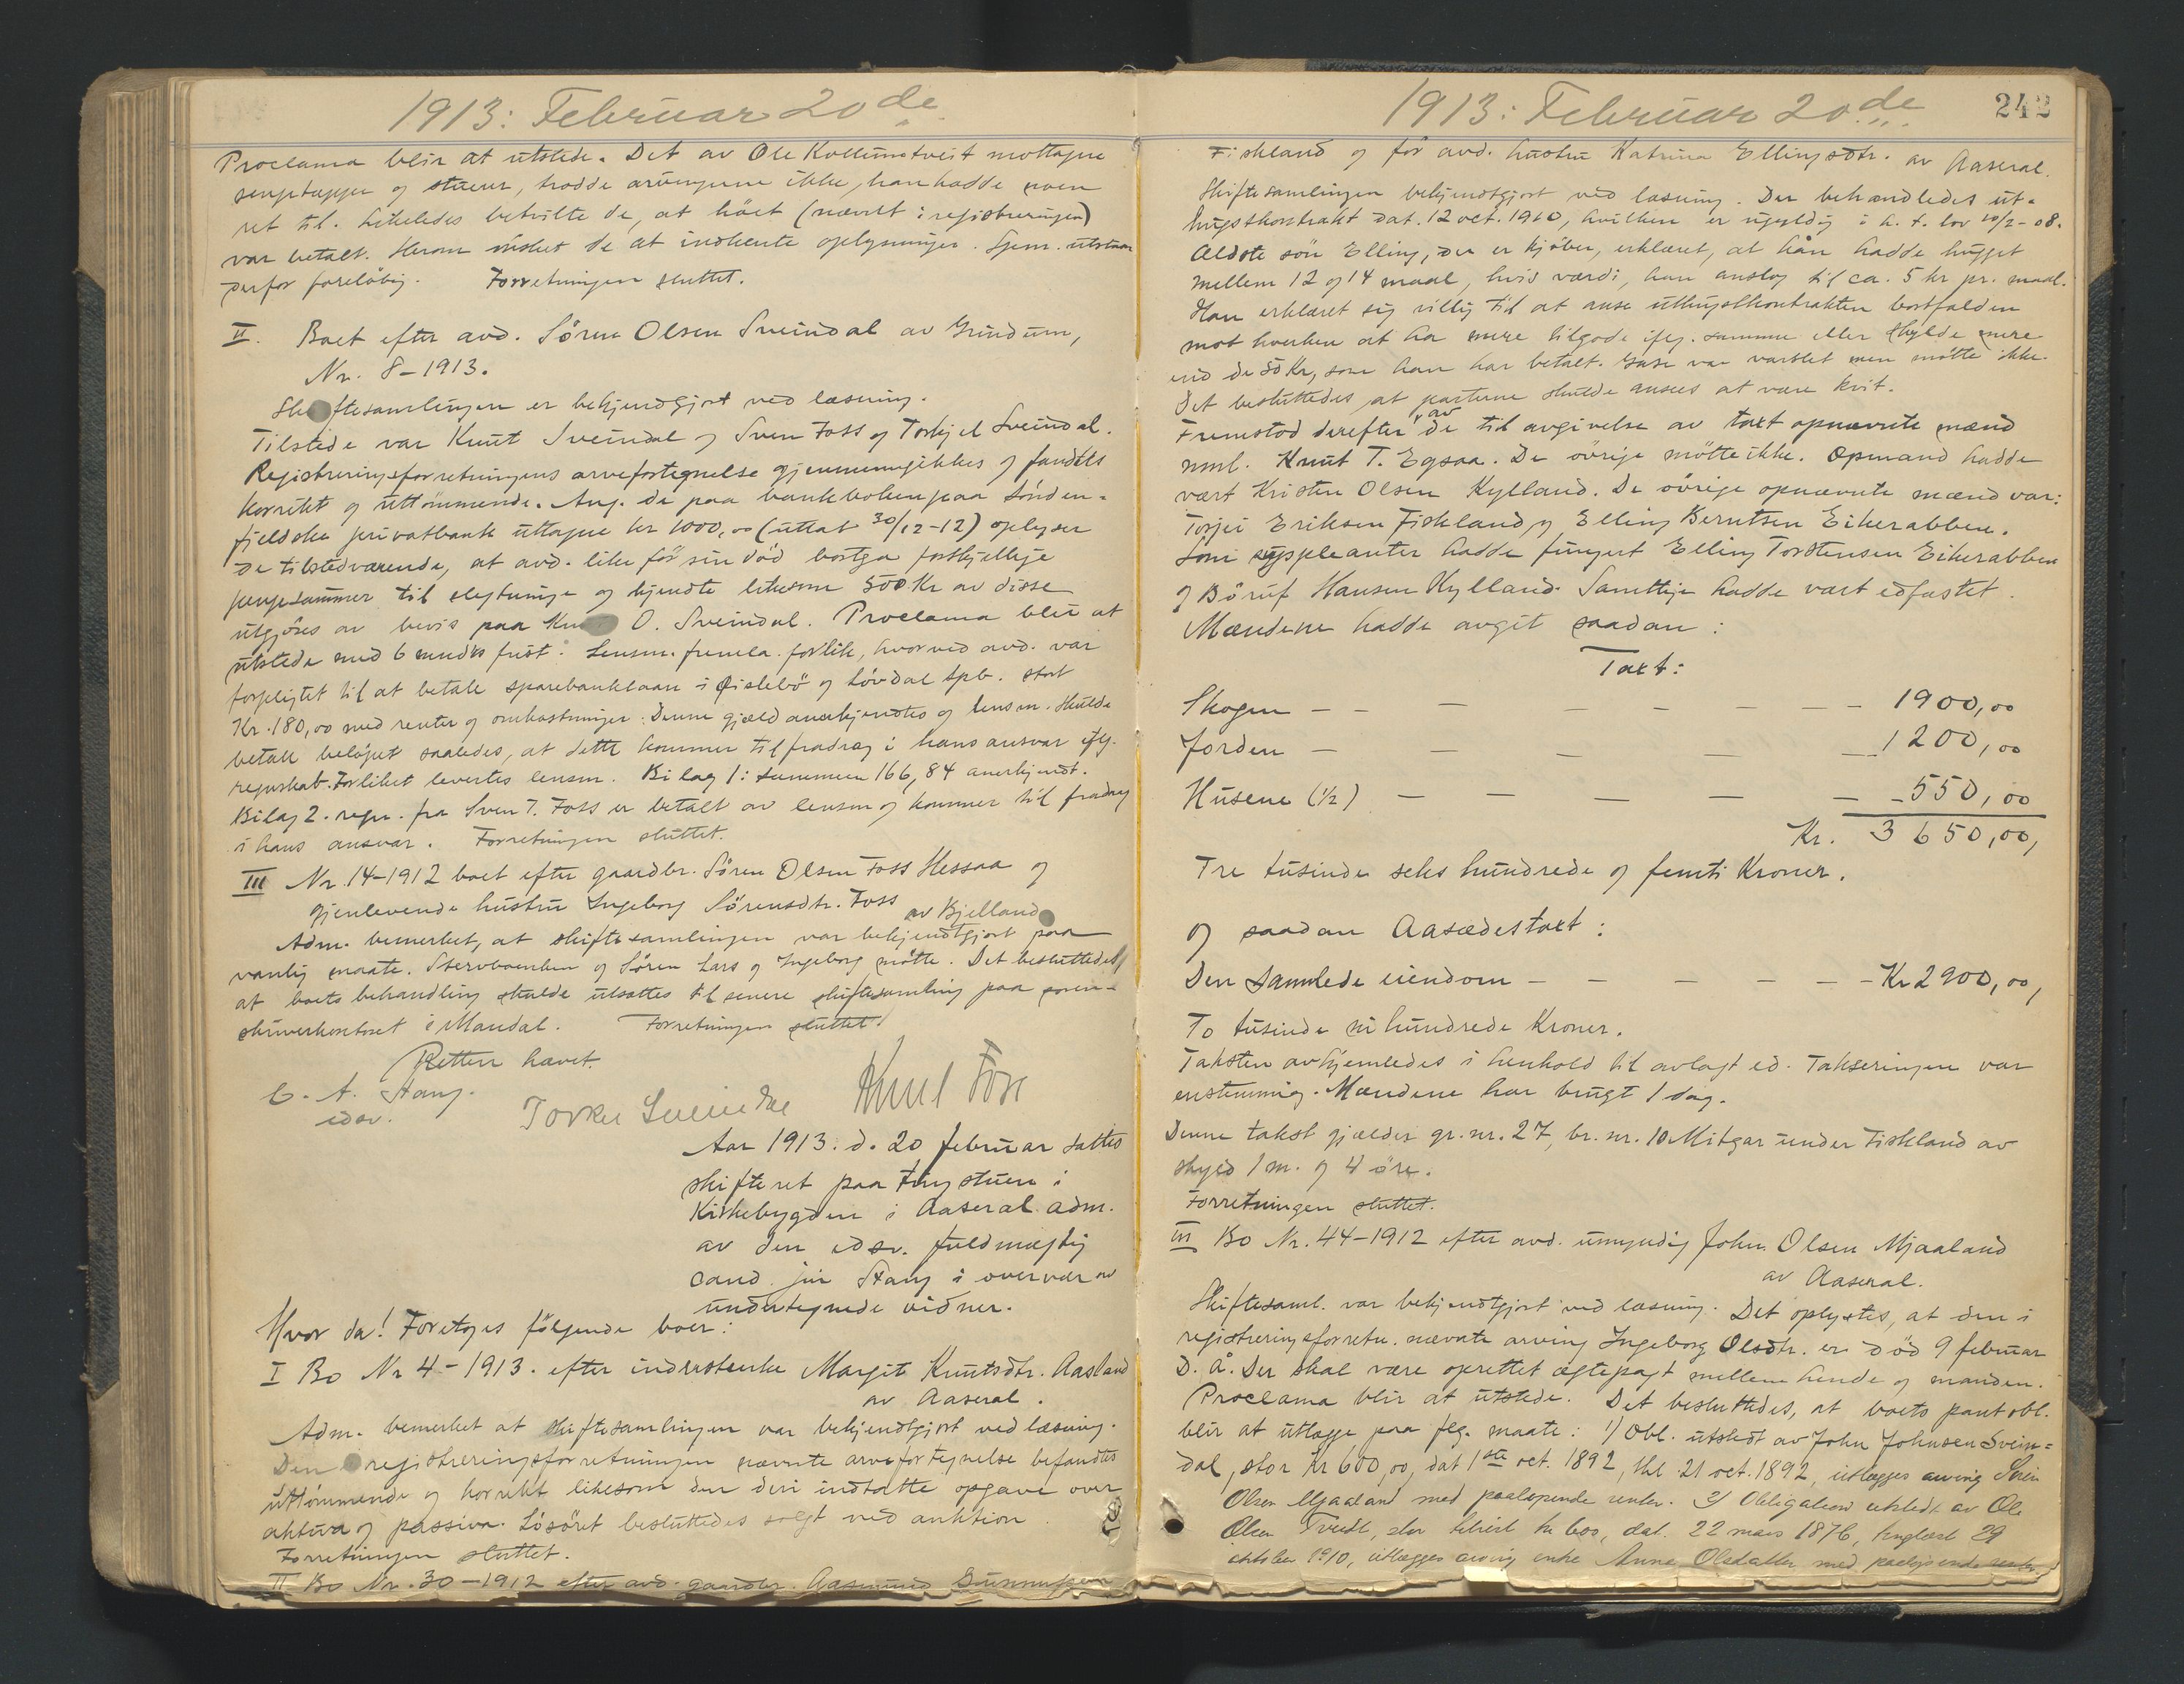 1913: Februar 20de
Proclama blir at utstede. Det av Ole Kollumstveit mottagne
sengetæpper og stueur, trodde arvingerne ikke, han hadde noen
ret til. Likeledes betvilte de, at höiet (nævnt i registreringen)
var betalt. Herom ønsket de at indhente oplysninger.
derfor foreløbig. Forretningen sluttet.
II. Boet efter avd. Sören Olsen Sveindal av Grindum,
Nr. 8-1913.
Skiftesamlingen er bekjendtgjort ved læsning.
Tilstede var Knut Sveindal og Sven Foss og Torkjel Sveindal.
Registreringsforretningens arvefortegnelse gjennemgikkes og fandtes
korrekt og uttömmende. Ang. de paa bankboken paa Sönden-
fjeldske privatbank uttagne kr 1000,00 (uttat 30/12-12) oplyser
de tilstedværende, at avd. like för sin död bortga forskjellige
pengesummer til slegtninge og kjendte likesom 500 Kr av disse
utgjöres av bevis paa Knut O. Sveindal. Proclama blir at
utstede med 6 mndrs frist. Lensm. fremla forlik, hvorved avd. var
forpligtet til at betale sparebanklaan i Øislebö og Lövdal Spb. stort
Kr. 180,00 med renter og omkostninger. Denne gjæld anerkjendtes og lensm. skulde
betale belöpet saaledes, at dette kommer til fradrag i hans ansvar iflg.
regnskab. Forliket levertes lensm. Bilag 1: summen 166,84 anerkjendt.
Bilag 2. regn. fra Sven T. Foss er betalt av lensm og kommer til fradrag
i hans ansvar. Forretningen sluttet.
III Nr. 14-1912 boet efter gaardbr. Sören Olsen Foss Hessaa og
gjenlevende hustru Ingeborg Sörensdtr. Foss av Bjelland
Adm. bemerket, at skiftesamlingen var bekjendtgjort paa
vanlig maate. Stervboenken og Sören Lars og Ingeborg mötte. Det besluttedes
at boets behandling skulde utsættes til senere skiftesamling paa soren-
skriverkontoret i Mandal. Forretningen sluttet.
Retten hævet.
C. A. Stang.
edsv.
Torkel Sveindal Knut Foss
Aar 1913. d. 20 februar sattes
skifteret paa Tingstuen i
Kirkebygden i Aaseral adm.
av den edsv. fuldmægtig
cand. jur Stang i overvær av
undertegnede vidner.
Hvor da! Foretoges fölgende boer:
I Bo Nr 4-1913. efter inderstenke Margit Knutsdtr. Aasland
av Aaseral.
Adm. bemerket at skiftesamlingen var bekjendtgjort ved læsning.
Den i registreringsforretningen nævnte arvefortegnelse befandtes
uttömmende og korrekt likesom den deri indtatte opgave over
aktiva og passiva. Lösöret besluttedes solgt ved auktion.
Forretningen sluttet.
II Bo Nr. 30-1912 efter avd. gaardbr. Aasmund Gunnufsen
1913: Februar 20de
242
Fiskland og för avd. hustru Katrina Ellingsdtr. av Aaseral.
Skiftesamlingen bekjendtgjort ved læsning. Der behandledes ut-
hugstkontrakt dat. 12 oct. 1910, hvilken er ugyldig i h. t. lov 20/2-08.
Ældste sön Elling, der er kjöber, erklæret, at han hadde hugget
mellem 12 og 14 maal, hvis værdi, han anslog til ca. 5 kr pr. maal.
Han erklæret sig villig til at anse uthugstkontrakten bortfalden
mot hverken at ha mere tilgode iflg. samme eller skylde mere
end de 50 Kr, som han har betalt. Gase var varslet men mötte ikke.
Det besluttedes at parterne skulde ansees at være kvit.
Fremstod derefter av de til avgivelse av taxt opnævnte mænd
nml. Knut T. Egsaa. De övrige mötte ikke. Opmand hadde
vært Kristen Olsen Kylland. De övrige opnævnte mænd var:
Torjei Eriksen Fiskland og Elling Berntsen Eikerabben.
Som suppleanter hadde fungert Elling Torstensen Eikerabben
og Böruf Hansen Kylland. Samtlige hadde vært edfæstet.
Mændene hadde avgit saadan:
Taxt:
Skogen - - - - - - - - 1900,00
Jorden - - - - - 1200,00
Husene (1/2) - - - - - - 550,00
Kr. 3650,00,
Tre tusinde seks hundrede og femti Kroner.
og saadan Aasædestaxt:
Den samlede eiendom - - - - - - Kr 2900,00,
To tusinde ni hundrede Kroner.
Taksten avhjemledes i henhold til avlagt ed. Takseringen var
enstemmig. Mændene har brugt 1 dag.
Denne takst gjælder gr. nr. 27, br. nr. 10 Mitgar under Fiskland av
skyld 1 m. og 4 öre.
Forretningen sluttet.
III Bo Nr. 44-1912 efter avd. umyndig John Olsen Mjaaland
av Aaseral.
Skiftesaml. var bekjendtgjort ved læsning. Det oplystes, at den i
registreringsforretn. nævnte arving Ingeborg Olsdtr. er död 9 februar
d. å. Der skal være oprettet ægtepagt mellem hende og manden.
Proclama blir at utstede. Det besluttedes, at boets pantobl.
blir at utlægge paa flg. maate: 1) Obl. utstedt av John Johnsen Svein-
dal, stor Kr 600,00, dat 1ste oct. 1892, thl. 21 oct. 1892, utlægges arving Sörin
Olsen Mjaaland med paalöpende renter. 2) Obligation utstedt av Ole
Olsen Tveidt, stor kr 600, dat. 22 mars 1876, tinglæst 29
oktober 1910, utlægges arving enke Anne Olsdatter med paalöpende renter